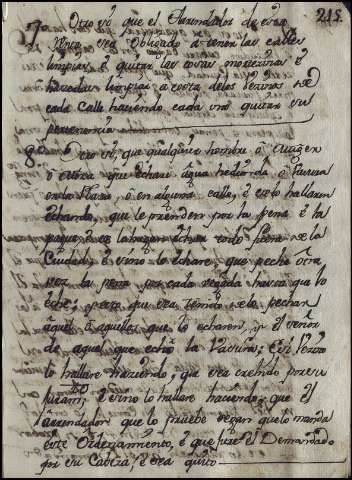 215.
7. Otro sí que el Arrendador de esta
renta sea obligado a tener las calles
limpias, é quitar las cosas mortecinas é
hacerlas limpiar a costa delos vecinos de
cada calle haciendo cada uno quitar su
pertenencia
8. Otro sí, que qualquier hombre ó Muger
ó otro que echare agua hedionda ó Vasura
en la Plaza, ó en alguna calle, é selo hallaren
echando, que le prenden por la pena é la
pague é la hagan echar fuera de la
Ciudad, é si no lo echare, que peche otra
vez la pena por cada vegada hasta que lo
eche; pero que sea tenido de lo pechar
aquel ó aquellos que lo echaren, ó el señor
de aquel que echó la Vasura; é si
lo hallare haciendo; que sea creido por su
juram.to é si no lo hallare haciendo; que el
arrendador que lo pruebe segun que lo manda
este Ordenamiento, é que jure el Demandado
por su Cabeza, é sea quito